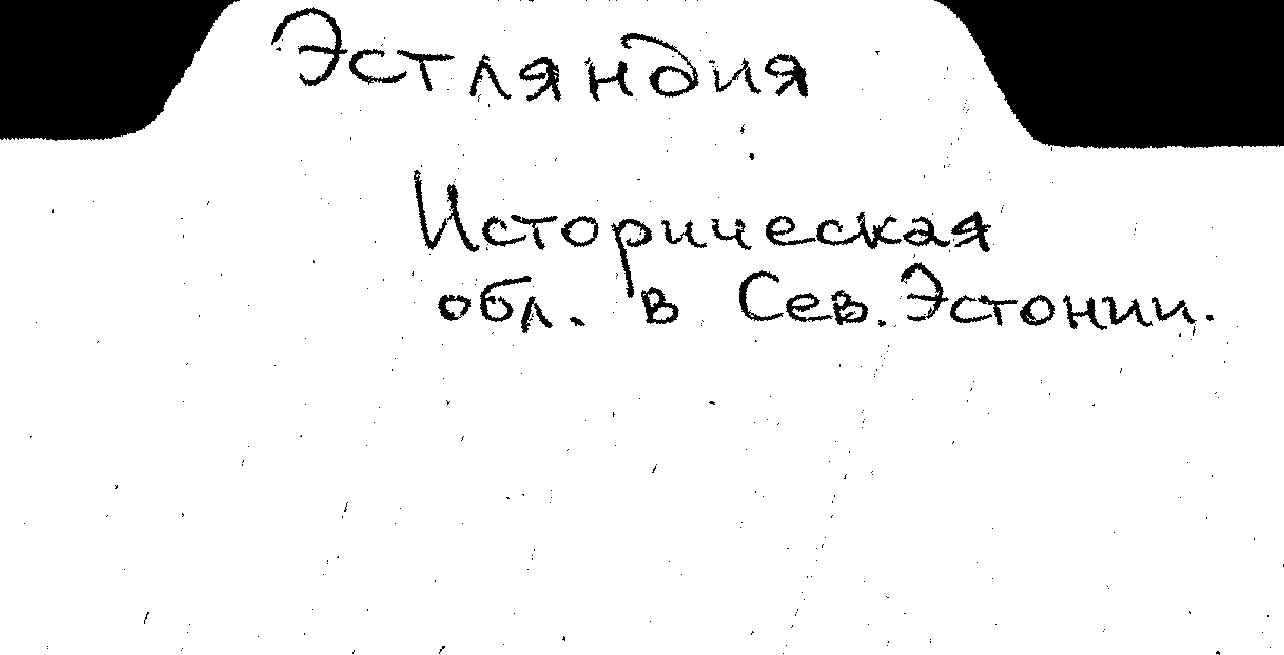 Эстляндия
Историческая
обл. в Сев. Эстонии.